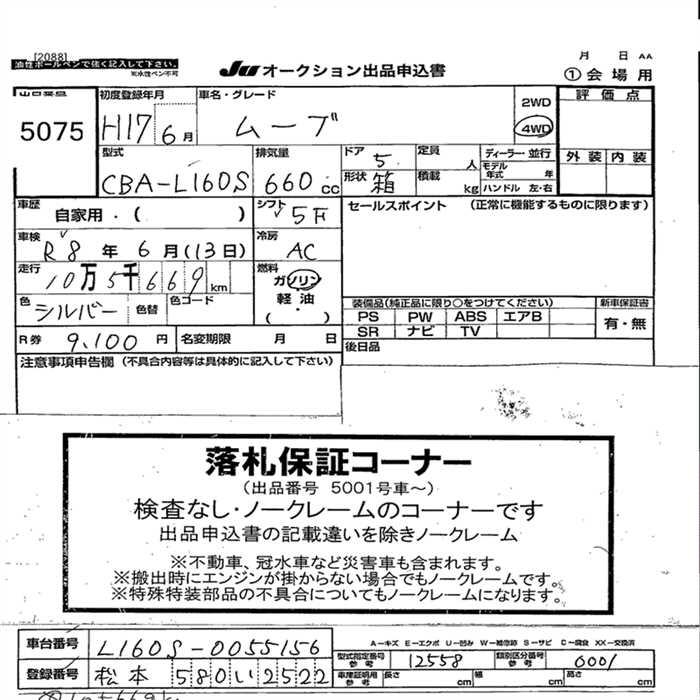 [2088]
油性ボールペンで強く記入して下さい。
※水性ペン不可
JU オークション出品申込書
月 日 AA
①会場用
5075
初度登録年月
H17 6月
車名・グレード
ムーブ
2WD
4WD
評価点
外装 内装
型式
CBA-L160S
排気量
660 cc
ドア 5
形状 箱
定員 人
積載 kg
ディーラー・並行
モデル年式 年
ハンドル 左・右
車歴
自家用・( )
シフト
5F
セールスポイント (正常に機能するものに限ります)
車検
R8年6月(13日)
冷房
AC
走行
10万5千669km
燃料
ガソリン
・
軽油
( )
色
シルバー
色替
色コード
装備品(純正品に限り○をつけてください)
新車保証書
PS PW ABS エアB
SR ナビ TV
有・無
R券 9,100円
名変期限 月 日
後日品
注意事項申告欄 (不具合内容等は具体的に記入して下さい)
落札保証コーナー
(出品番号 5001号車〜)
検査なし・ノークレームのコーナーです
出品申込書の記載違いを除きノークレーム
※不動車、冠水車など災害車も含まれます。
※搬出時にエンジンが掛からない場合でもノークレームです。
※特殊特装部品の不具合についてもノークレームになります。
車台番号 L160S-0055156
A-キズ E-エクボ U-凹み W-補修跡 S-サビ C-腐食 XX-交換済
型式指定番号 参考 12558
類別区分番号 参考 0001
登録番号 松本 580 い 2522
車庫証明用 参考 長さ cm 幅 cm 高さ cm